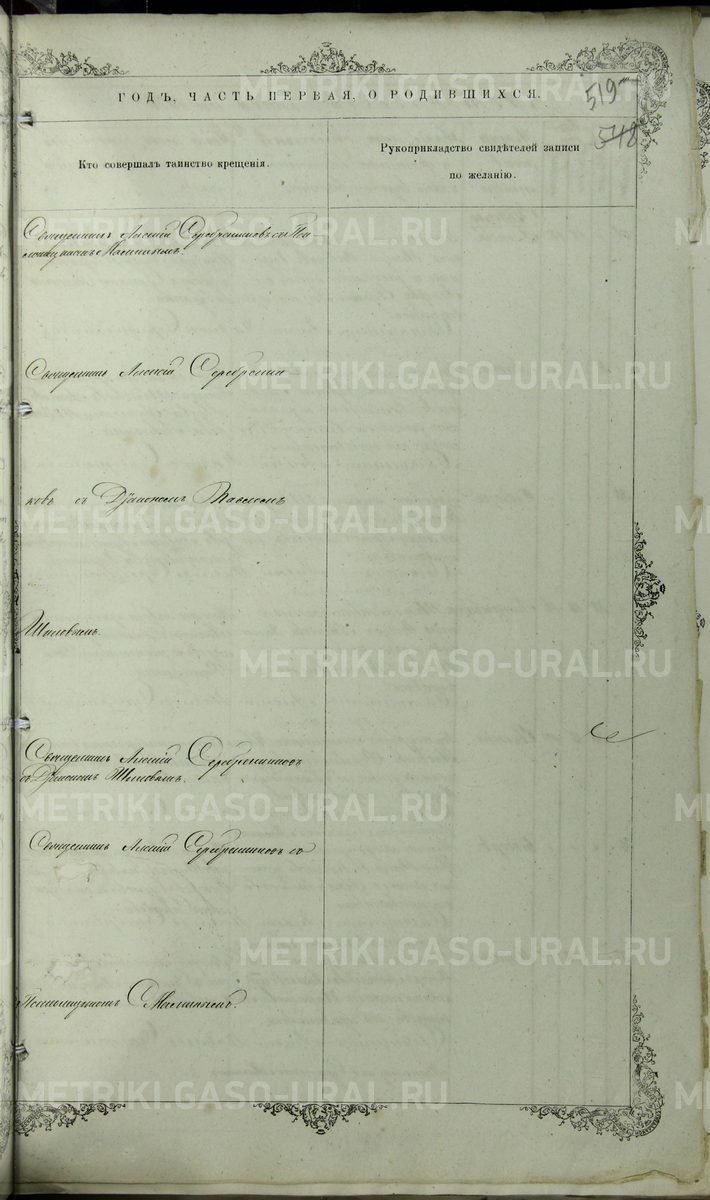 ГОДЪ, ЧАСТЬ ПЕРВАЯ, О РОДИВШИХСЯ.
519
548
Кто совершалъ таинство крещенія.
Рукоприкладство свидѣтелей записи
по желанію.
Священникъ Алексій Серебренниковъ съ По-
Священникъ Алексій Серебренни
ковъ съ Дьякономъ Павломъ
Шиловымъ.
Священникъ Алексій Серебренниковъ
съ Дьякономъ Шиловымъ.
Священникъ Алексій Серебренниковъ съ
METRIKI.GASO-URAL.RU